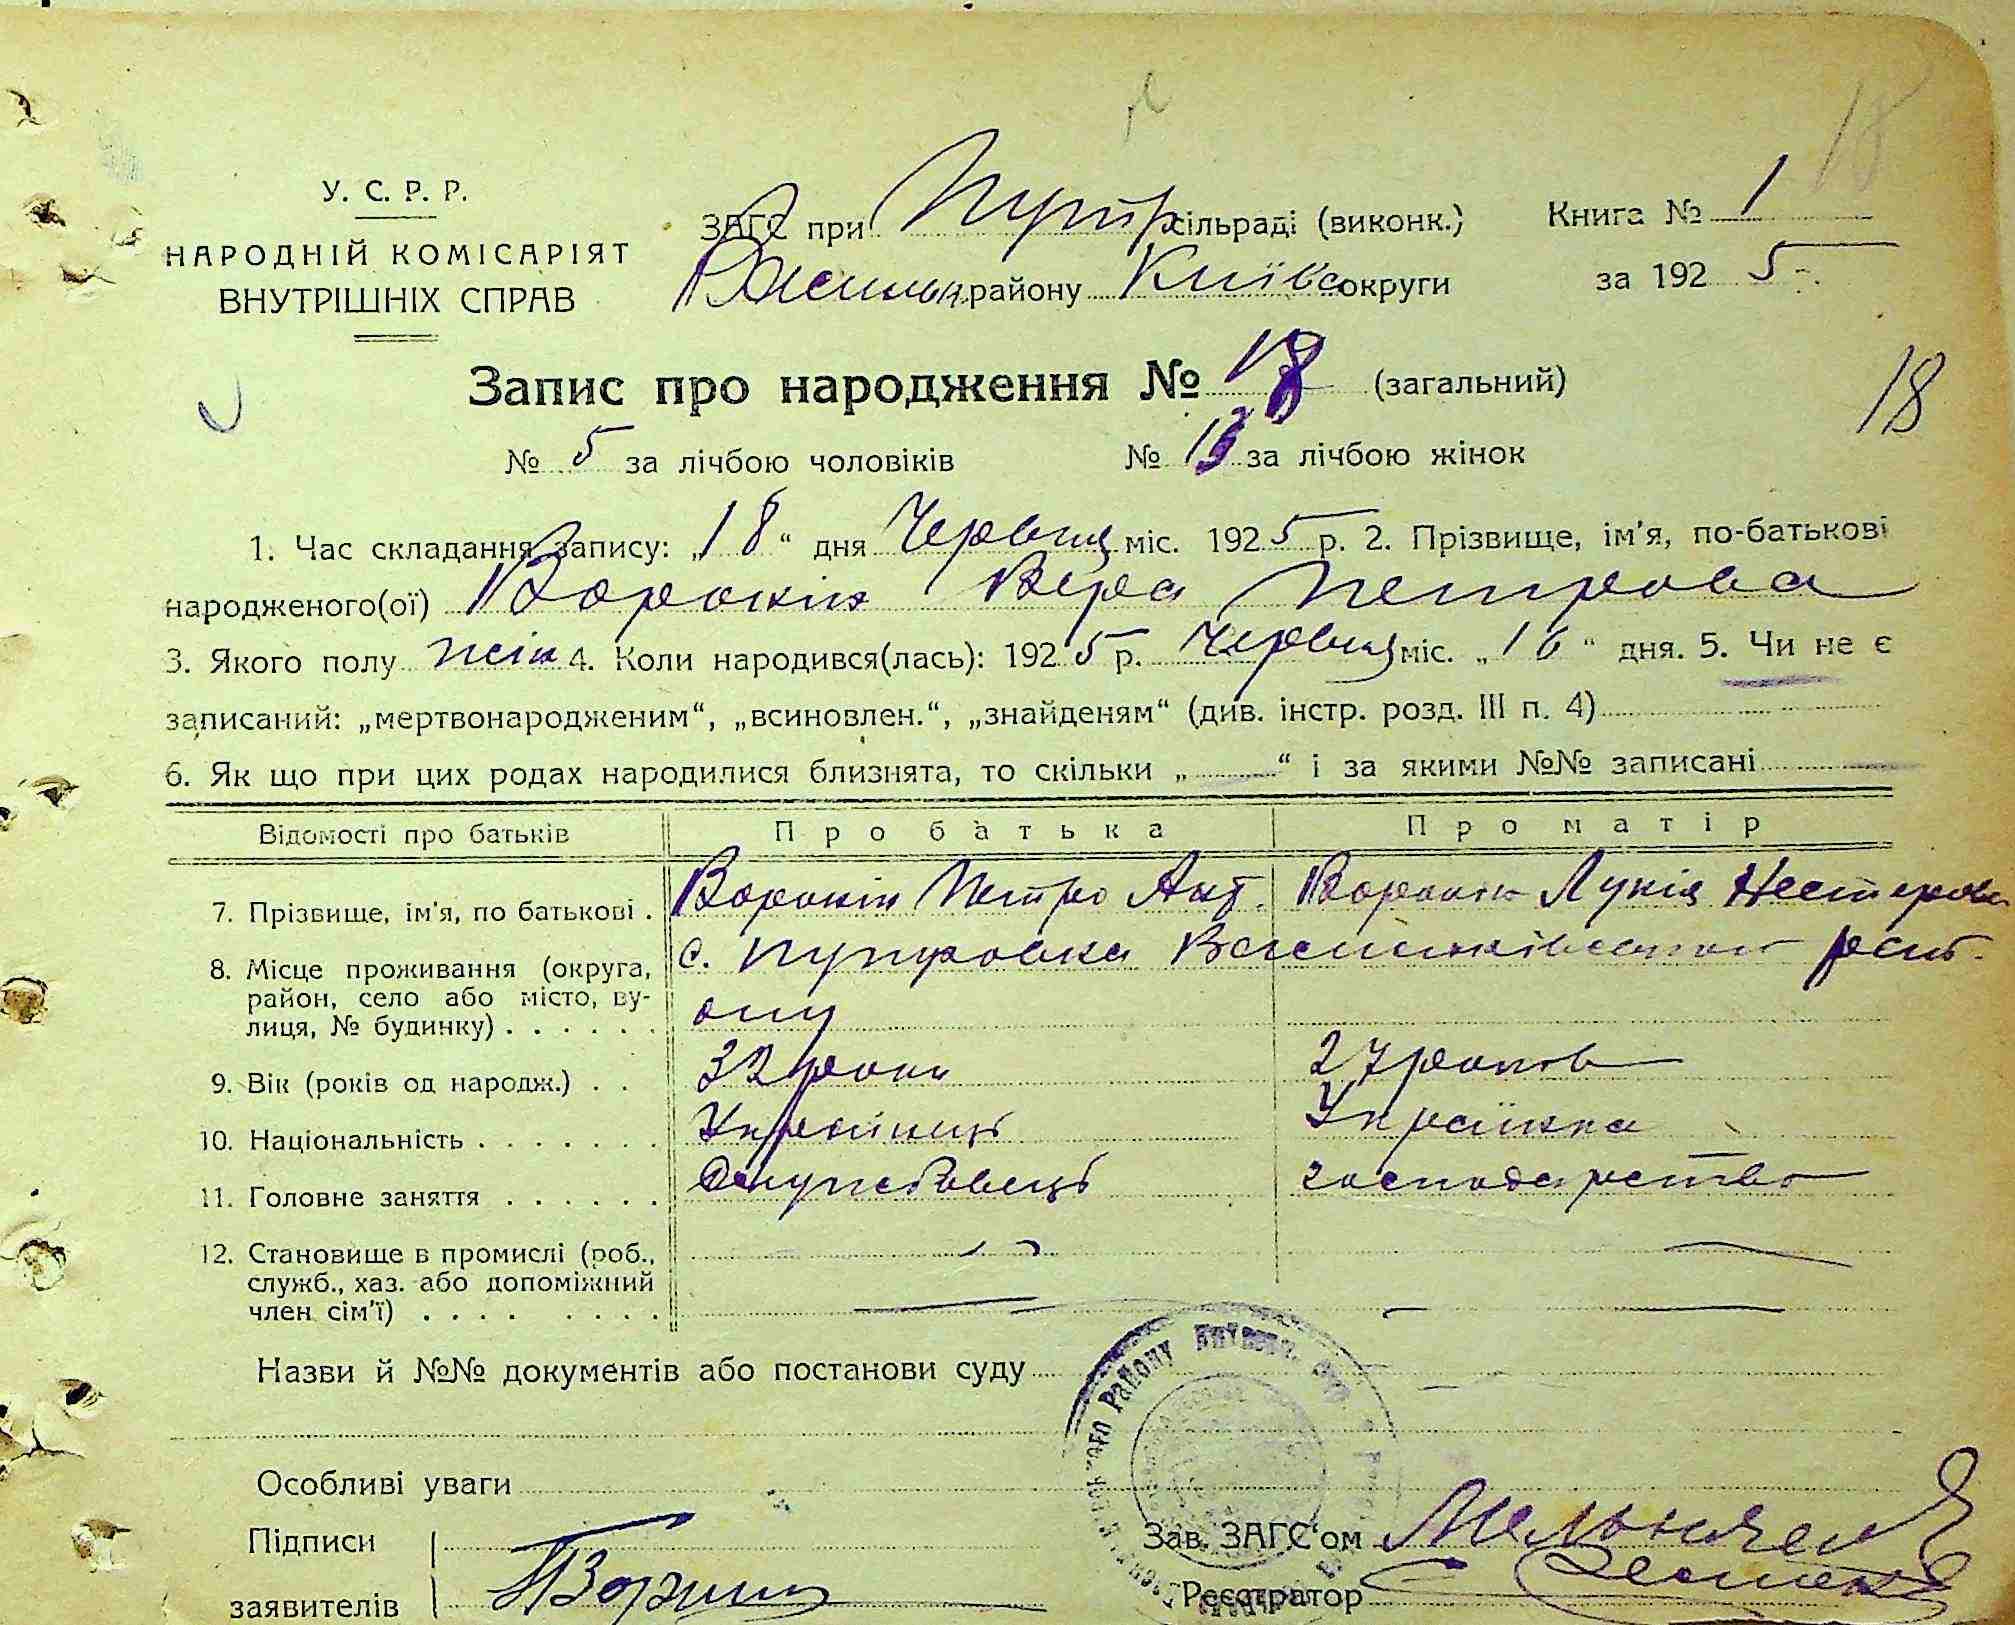 18
У. С. Р. Р.
НАРОДНІЙ КОМІСАРІЯТ
ВНУТРІШНІХ СПРАВ
ЗАГС при Путр сільраді (виконк.)
району Київс округи
Книга № 1
за 192 5
Запис про народження № 18 (загальний)
18
№ 5 за лічбою чоловіків № 13 за лічбою жінок
1. Час складання запису: „18“ дня Червня міс. 1925 р. 2. Прізвище, ім'я, по-батькові
народженого(ої) Воронін Вера Петрова
3. Якого полу жін 4. Коли народився(лась): 1925 р. Червня міс. „16“ дня. 5. Чи не є
записаний: „мертвонародженим“, „всиновлен.“, „знайденям“ (див. інстр. розд. III п. 4)
6. Як що при цих родах народилися близнята, то скільки „ “ і за якими №№ записані
Відомості про батьків Про батька Про матір
7. Прізвище, ім'я, по батькові . Воронін Петро Ант. Воронін Лукія Нестерова
8. Місце проживання (округа, район, село або місто, вулиця, № будинку) с. Путровка Васильківського рай-
ону
9. Вік (років од народж.) . . 32 роки 27 роков
10. Національність . . . . . . . Українець Українка
11. Головне заняття . . . . . . Службовець господарство
12. Становище в промислі (роб.,
служб., хаз. або допоміжний
член сім'ї) . . . . . . . . .
Назви й №№ документів або постанови суду
Особливі уваги
Підписи
заявителів
Зав. ЗАГС'ом
Реєстратор
Району